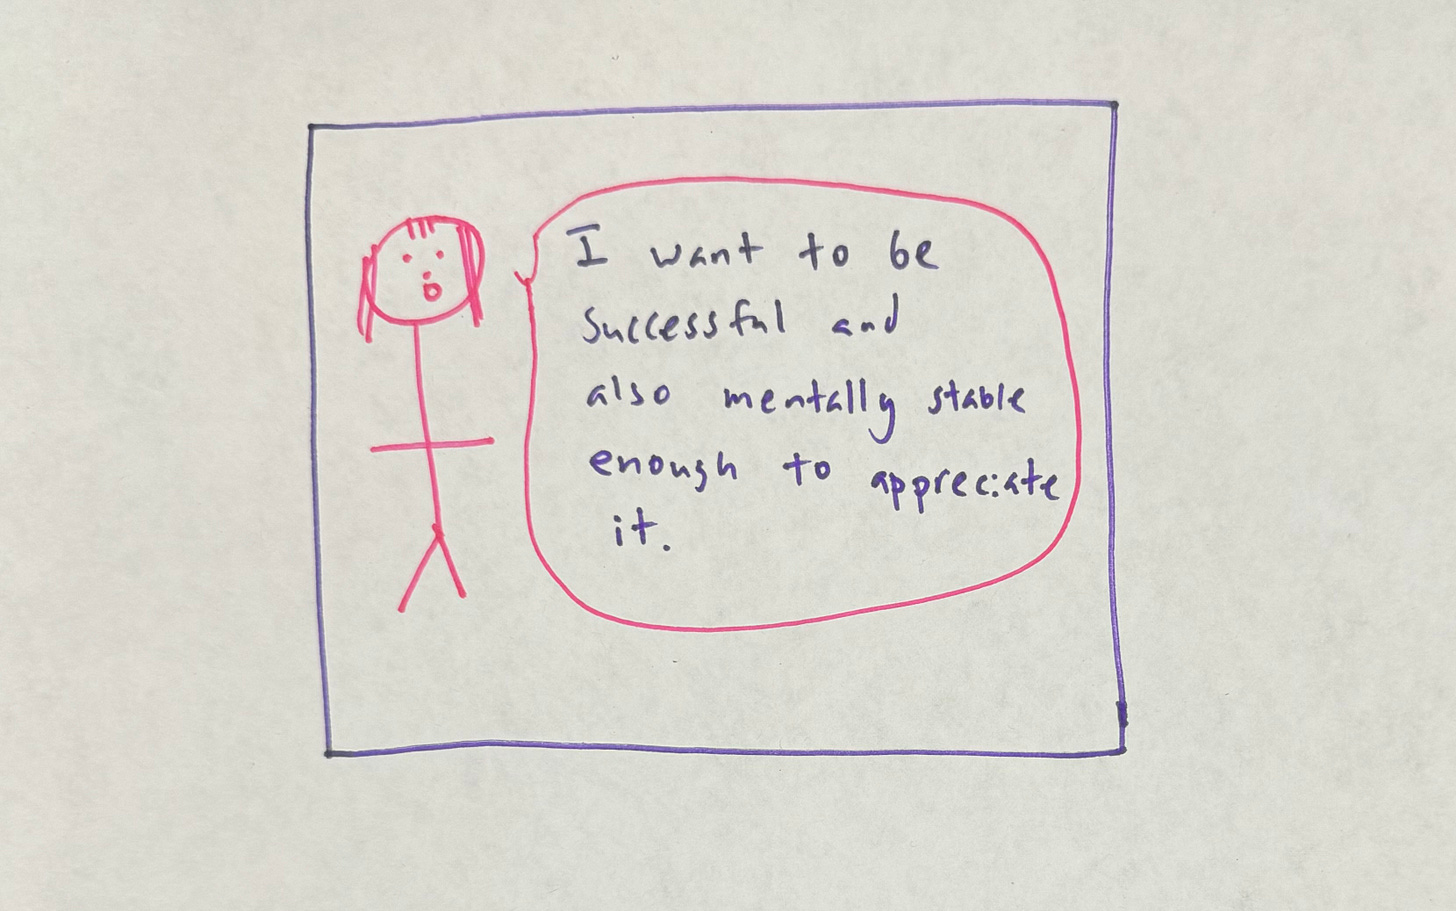 I want to be
successful and
also mentally stable
enough to appreciate
it.